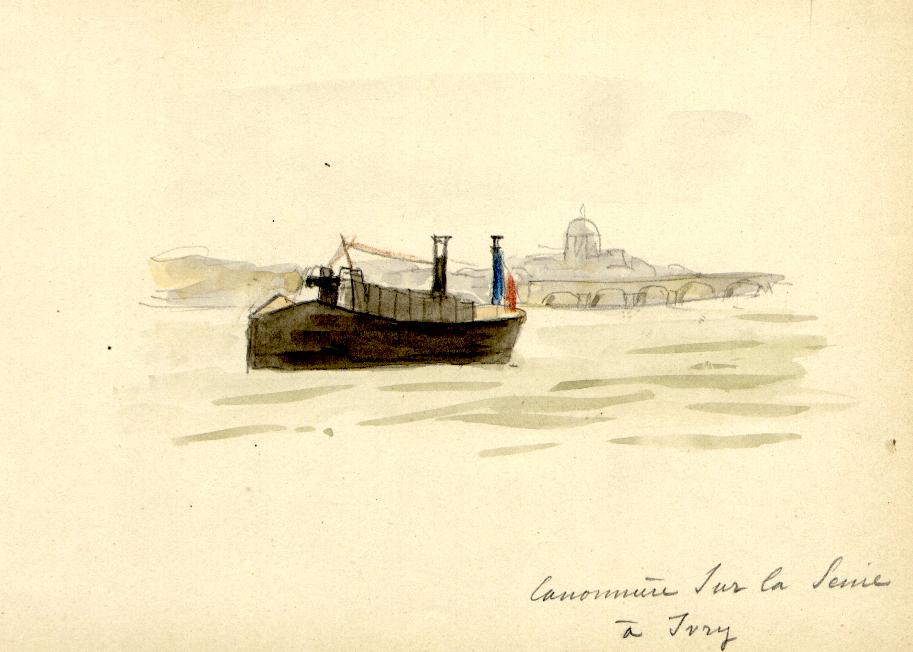 Canonnière Sur la Seine
à Ivry